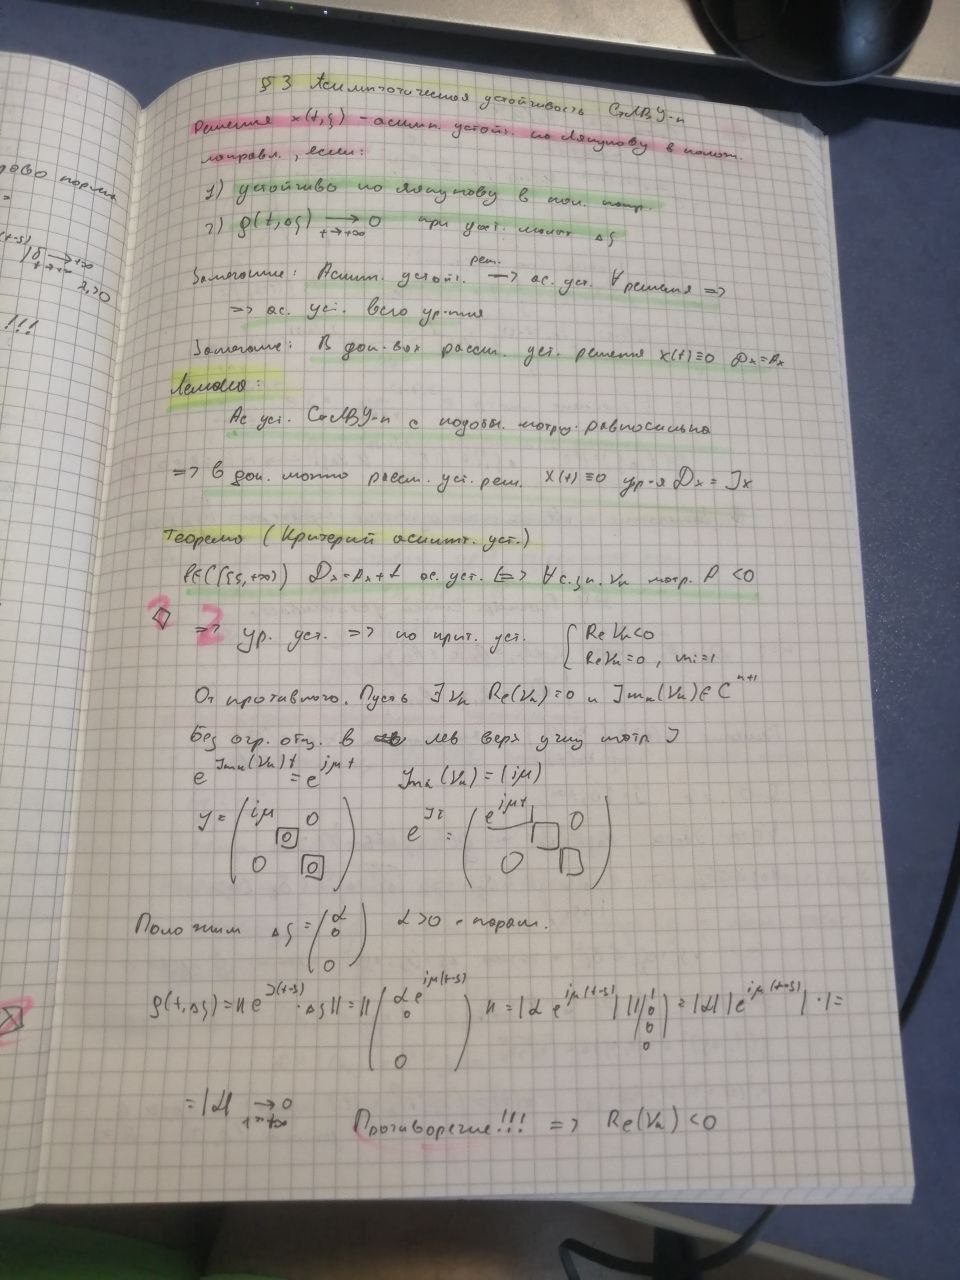 дово норма
=
| δ | → +∞
t→+∞
λ>0
!!!
§ 3 Асимптотическая устойчивость СтЛВУ-n
Решение x(t,ξ) - асимп. устойч. по Ляпунову в полож.
направл., если:
1) устойчиво по Ляпунову в пол. напр.
2) ρ(t,Δξ) → 0 при дост. малом Δξ
t→+∞
Замечание: Асимп. устойч. реш. → ас. уст. ∀ решения =>
=> ас. уст. всего ур-ния
Замечание: В док-вах рассм. уст. решения x(t)≡0 Dx=Ax
Лемма:
Ас уст. СтЛВУ-n с подобн. матриц. равносильна
=> в док. можно рассм. уст. реш. x(t)≡0 ур-я Dx = Jx
Теорема (Критерий асимпт. уст.)
Dx=Ax+f ас. уст. <=> ∀ с.зн. νk матр. A <0
=> ур. уст. => по крит. уст. { Re νk<0
Re νk=0, mi=1
От противного. Пусть ∃ νk Re(νk)=0 и Jmk(νk)∈C
Без огр. общ. в лев верх углу матр J
e^Jmk(νk)t = e^iμt Jmk(νk) = (iμ)
J = ( iμ 0 0 0 0 ) e^Jt = ( e^iμt 0 0 )
Положим Δξ = ( α 0 0 ) α>0 - парам.
ρ(t,Δξ) = || e^J(t-s) · Δξ || = || ( αe^iμ(t-s) 0 0 ) || = |α e^iμ(t-s)| || ( 1 0 0 0 ) || = |α| |e^iμ(t-s)| · 1 =
= |α| → 0
t→+∞
Противоречие!!! => Re(νk) <0